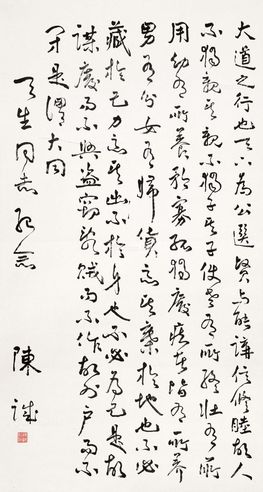 大道之行也天下為公選賢与能講信修睦故人
不獨親其親不獨子其子使老有所終壯有所
用幼有所養矜寡孤獨廢疾者皆有所養
男有份女有歸貨惡其棄於地也不必
藏於己力惡其出不於身也不必為己是故
謀廢而不興盜竊亂賊而不作故外戶而不
閉是謂大同
天生同志紀念
陳誠